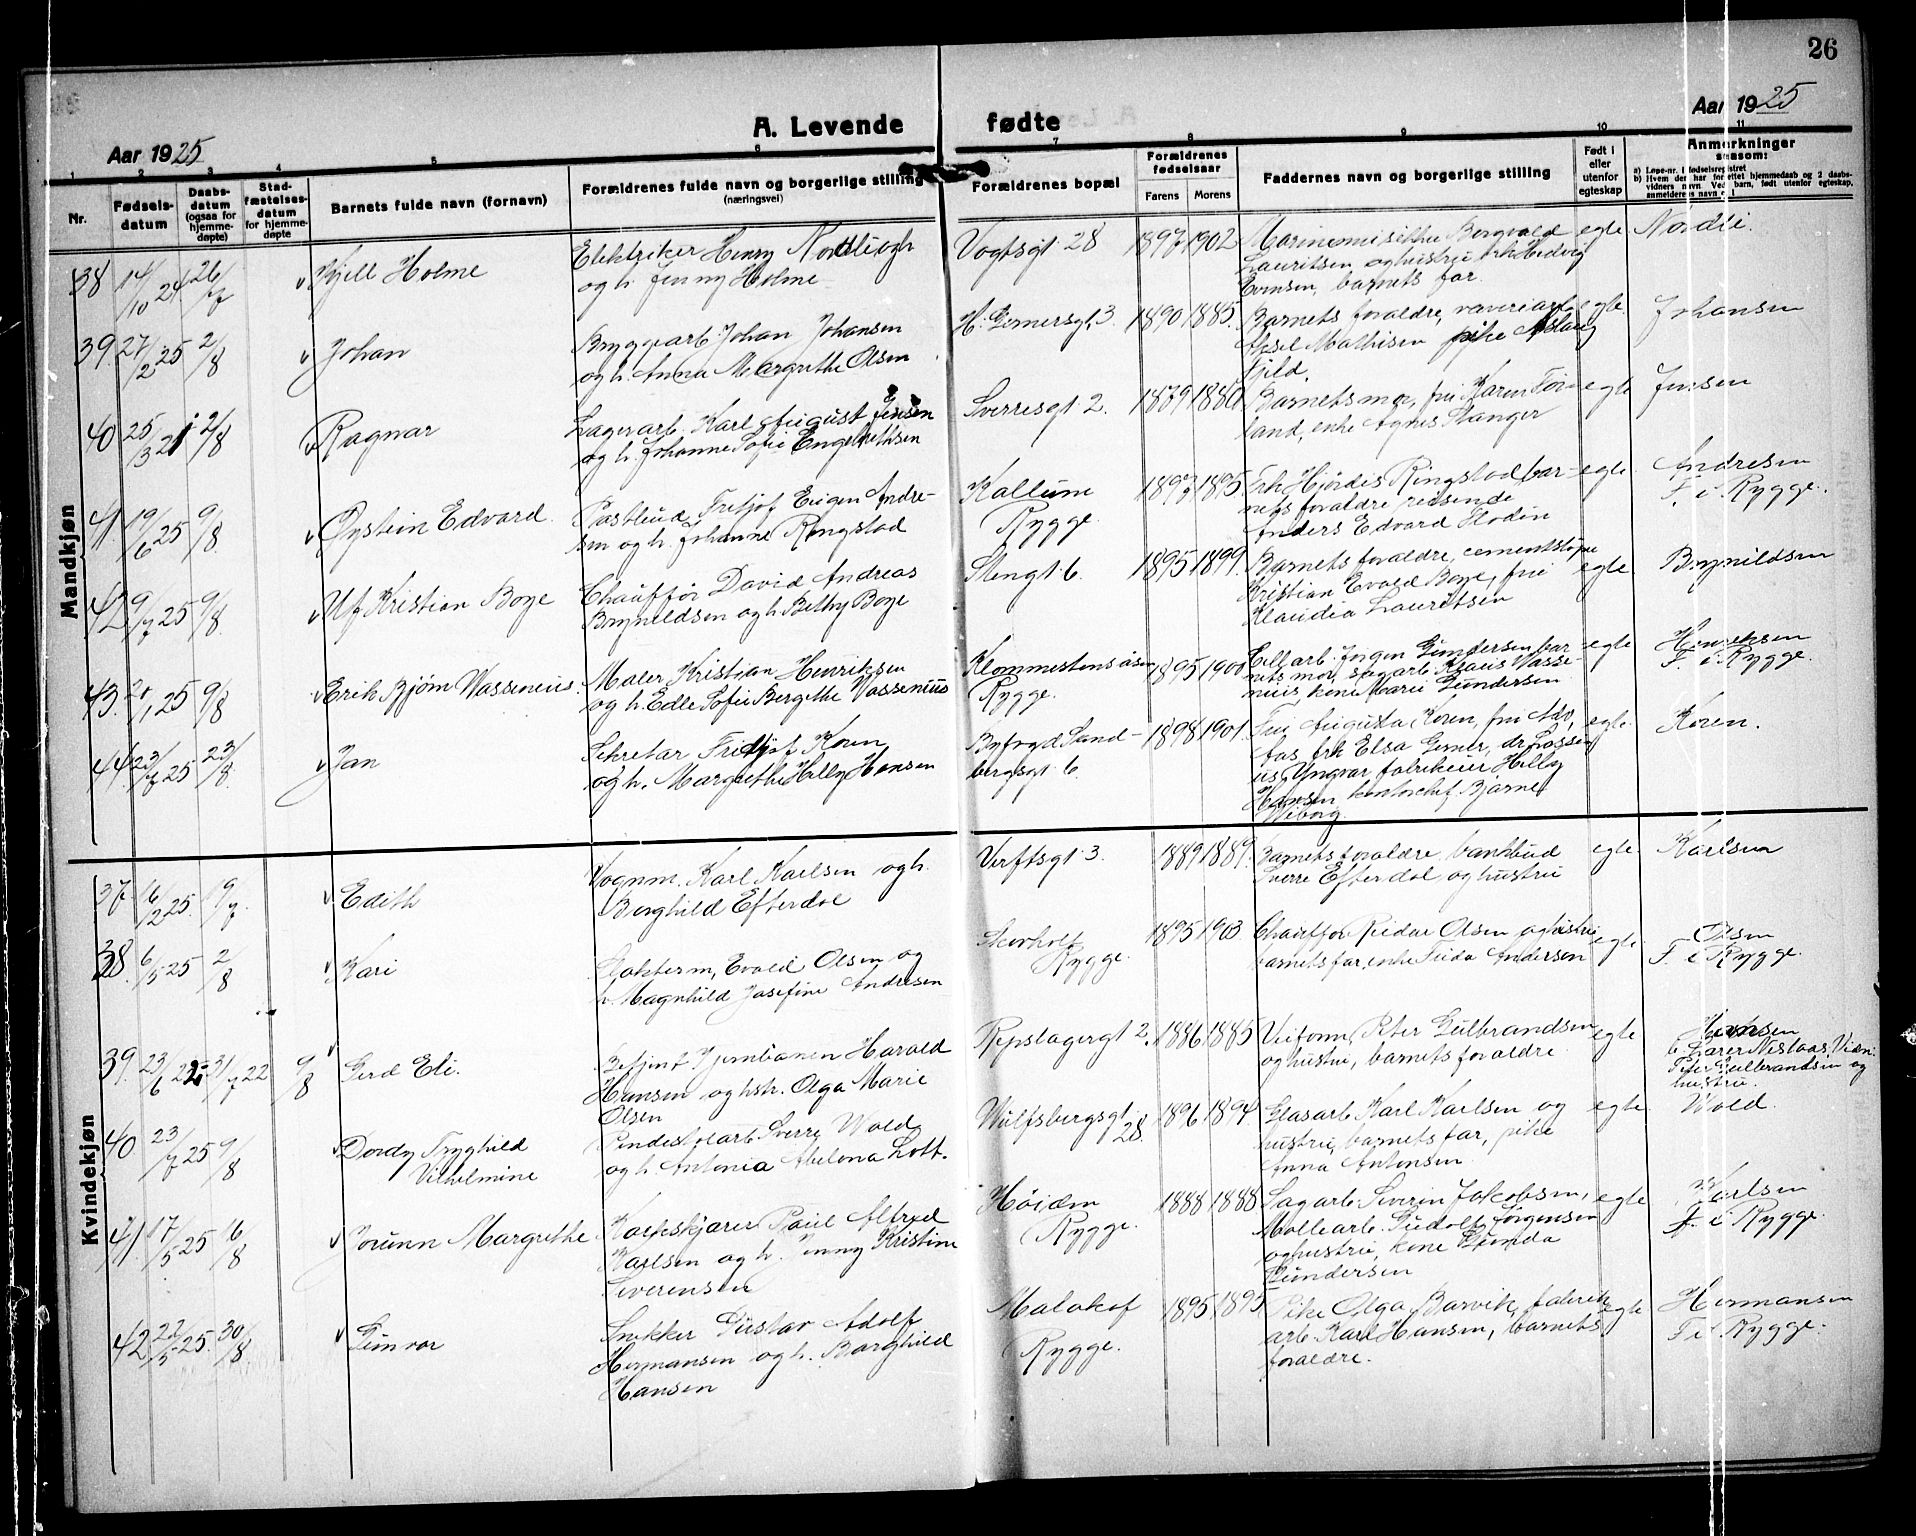 26
Aar 1925
A. Levende fødte
Aar 1925
1 2 3 4 5 6 7 8 9 10 11
Nr.
Fødsels-
datum
Daabs-
datum
(ogsaa for
hjemme-
døpte)
Stad-
fæstelses-
datum
for hjemme-
døpte
Barnets fulde navn (fornavn)
Forældrenes fulde navn og borgerlige stilling
(næringsvei)
Forældrenes bopæl
Forældrenes
fødselsaar
Farens Morens
Faddernes navn og borgerlige stilling
Født i
eller
utenfor
egteskap
Anmerkninger
saasom:
a) Løpe-nr. i fødselsregistret
Mandkjøn
38 14/10 24 26/7
Kjell Holme
Elektriker Henry Nordli og h
og h. Jenny Holme
Vogtsgt 28
1897 1902
Marinemisethe Borgvald
Lauritsen og hustru frk Hedvig
Evensen, barnets far
egte
Nordli.
39. 27/2 25 2/8
Johan
Bryggearb Johan Johansen
og h. Anna Margrethe Olsen
H. Gernersgt. 3.
1890 1885.
Barnets forældre, væveriarb
Aksel Mathisen pike Aslaug
Fjeld.
egte
Johansen
40 25/3 21 2/8
Ragnar
Lagerarb. Karl August Jensen
og h. Johanne Sofie Engebrethsen
Sverresgt. 2.
1879 1880
Barnets mor, fru Karen Tor-
land, enke Agnes Stanger
egte
Jensen
41. 19/6 25 9/8
Øystein Edvard
Postbud Fritjof Eugen Andre-
sen og h. Johanne Ringstad
Kallum
Rygge.
1897 1895
Frk Hjørdis Ringstad bar-
nets forældre reisende
Anders Edvard Hodin
egte
Andresen
F. i Rygge.
42 9/7 25 9/8
Ulf Kristian Boye
Chauffør David Andreas
Brynildsen og h. Bethy Boye
Stengt. 6.
1895 1899.
Barnets forældre, cementstøpe
Kristian Evald Boye, fru
Klaudia Lauritsen
egte
Brynildsen
43. 20/1 25 9/8
Erik Bjørn Wassenius.
Maler Kristian Henriksen
og h. Edle Sofie Bergithe Wassenius
Klommestensåsen
Rygge.
1895 1900
Cell arb. Jørgen Gundersen bar
nets mor, sagarb. Klaus Wasse-
nius kone Marie Gundersen
egte
Henriksen
F. i Rygge.
44. 23/7 25 23/8
Jan
Sekretær Fridtjof Koren
og h. Margrethe Helly Hansen
Byfogd Sand-
bergsgt. 6.
1898 1901
Fru Augusta Koren, fru
Aas frk Elsa Gerner, dr.
Yngvar fabrikeier Helly
Hansen, kontorchef Bjarne
Wiborg.
egte
Koren.
Kvindekjøn
37. 16/2 25. 19/7.
Edith
Vognm. Karl Karlsen og h.
Borghild Efterdal
Verftsgt. 3.
1889 1889.
Barnets forældre, bankbud
Sverre Efterdal og hustru
egte
Karlsen
38. 6/5 25 2/8
Kari
Slakterm. Evald Olsen og
h. Magnhild Josefine Andresen
Rygge.
1895 1903
Chauffør Reidar Olsen og hustru
barnets far, enke Frida Andersen
egte
Olsen
F. i Rygge.
39. 23/6 22 31/7 22 9/8
Gerd Eli.
Harald
Hansen og hstr. Olga Marie
Olsen
Repslagergt 2.
1886 1885
Peter Gulbrandsen
og hustru, barnets forældre
egte
Hansen
Peter Gulbrandsen og
hustru.
40 23/7 25 9/8
Dordy Tryghild
Vilhelmine
Sverre Wold
og h. Antonia Abelona Lott.
Wulfsbergsgt.
28.
1896 1894
Glasarb. Karl Karlsen og
hustru, barnets far, pike
Anna Antonsen
egte
Wold.
41. 17/5 25 16/8
Jorunn Margrethe
Paul Alfred
Karlsen og h. Jenny Kristine
Severensen
Høiden
Rygge.
1888 1888
Sagarb. Severin Jakobsen,
Møllearb. Gudolf Jørgensen
og hustru, kone Gunda
Gundersen
egte
Karlsen
F. i Rygge.
42 22/5 25. 30/8
Gunvor
Snekker Gustav Adolf
Hermansen og h. Borghild
Hansen
Malakof
Rygge.
1895 1895
Pike Olga Barvik, fabrik
arb. Karl Hansen, barnets
forældre.
egte
Hermansen
F. i Rygge.